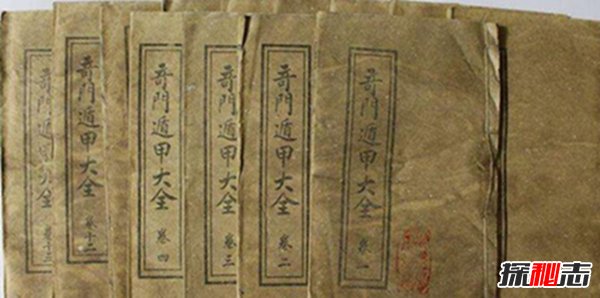 奇門遁甲大全 卷一
奇門遁甲大全 卷二
奇門遁甲大全 卷三
奇門遁甲大全 卷四
奇門遁甲大全 卷十二
奇門遁甲大全 卷十三
探秘志